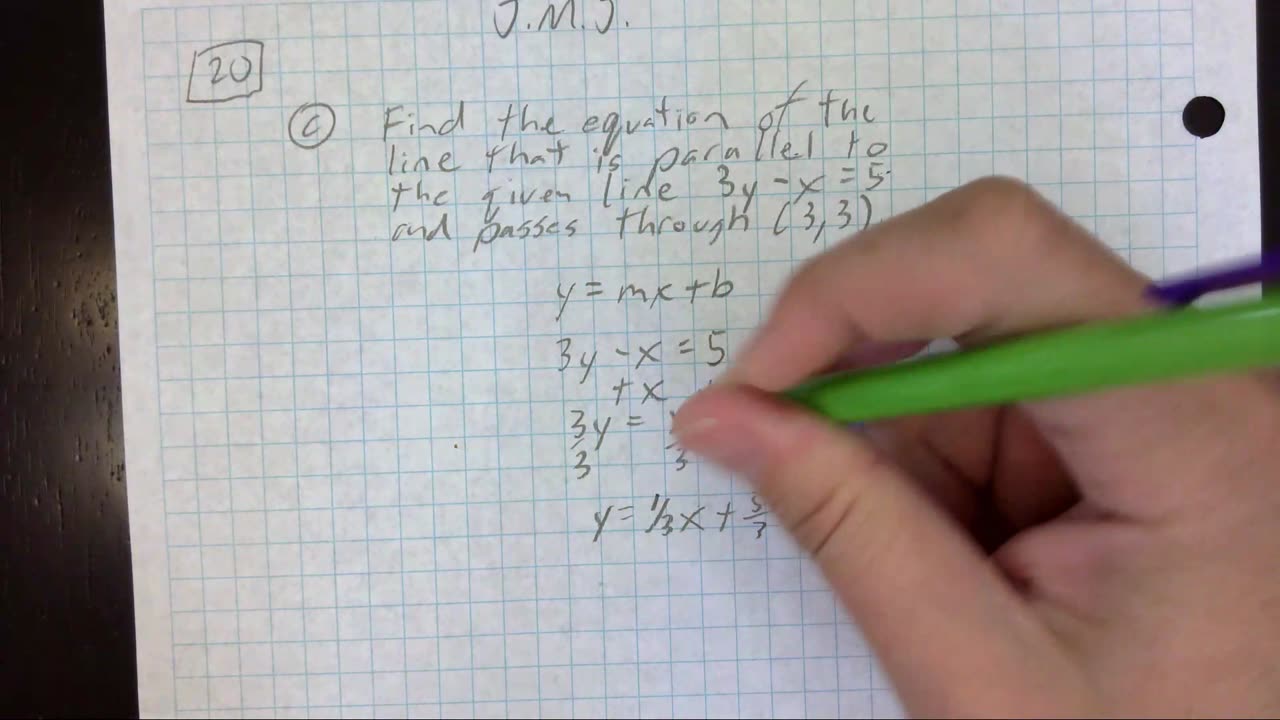 J.M.J.
20
c Find the equation of the
line that is parallel to
the given line 3y - x = 5
and passes through (3,3)
y = mx + b
3y - x = 5
+ x
3y =
3 3
y = 1/3x + 5/3